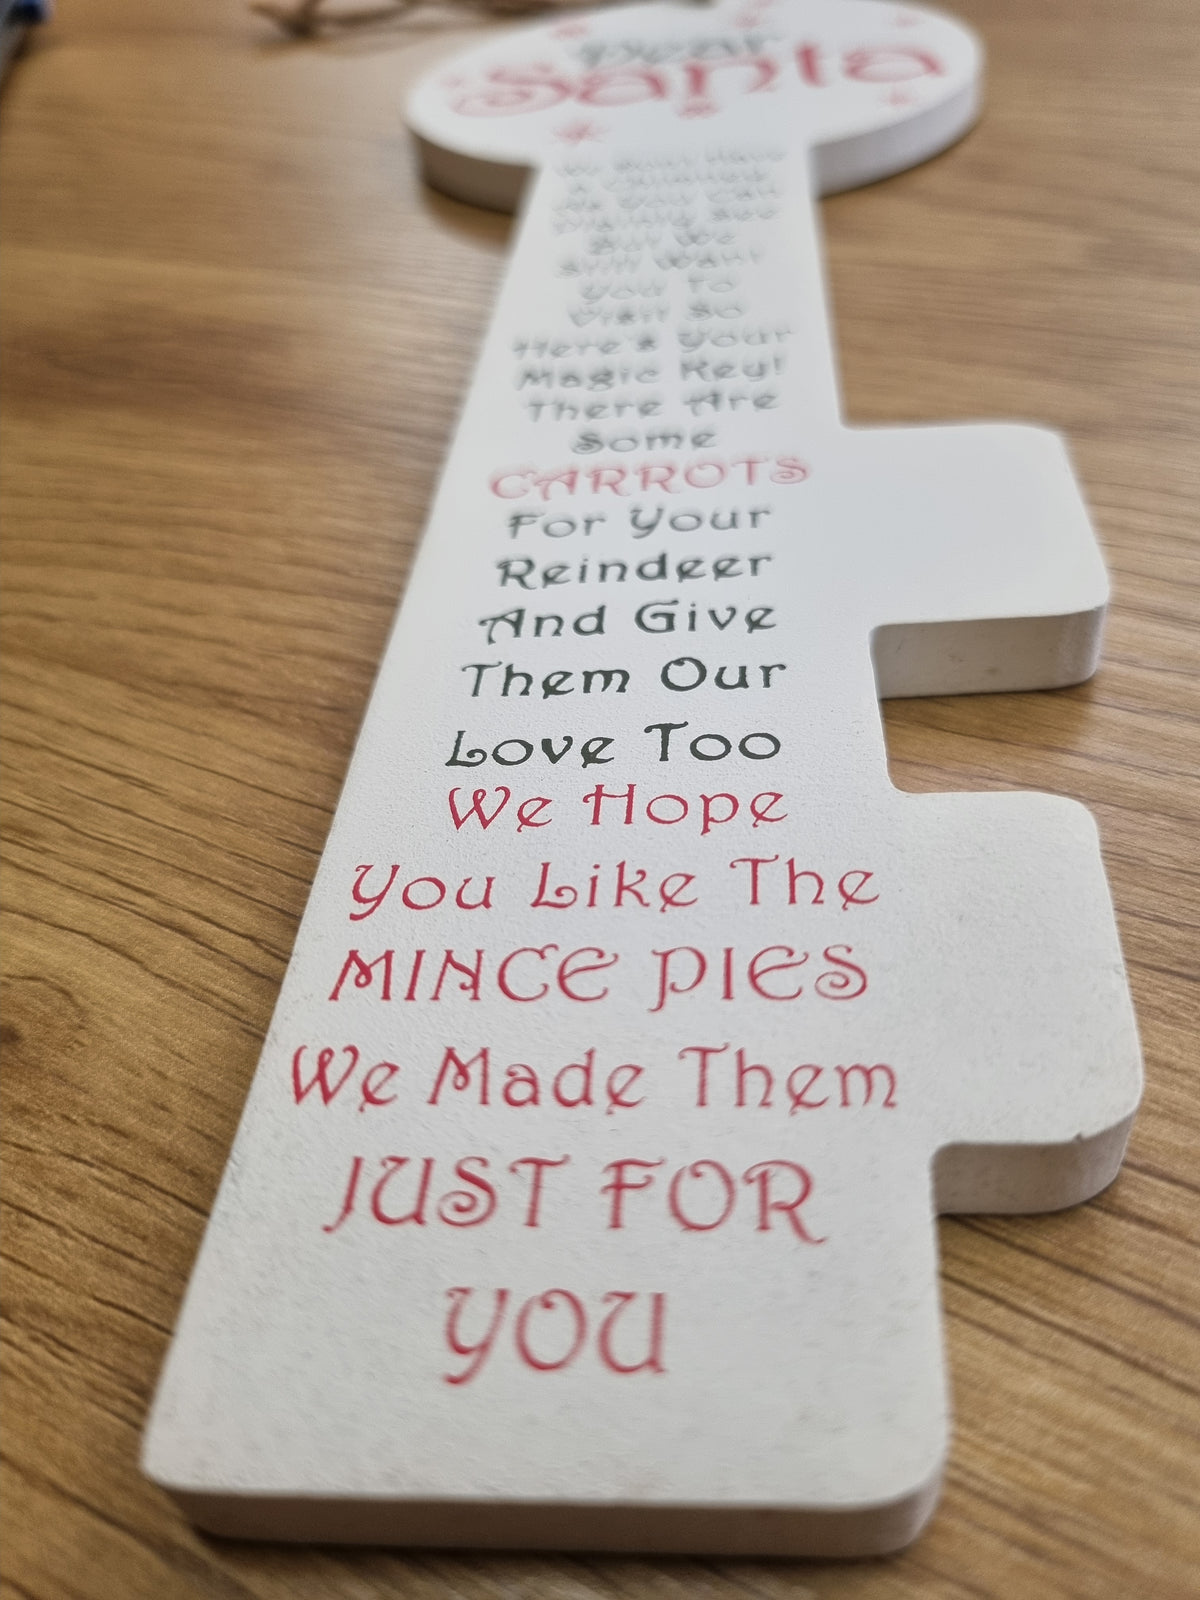 Dear
Santa
We Don't Have
A Chimney
As You Can
Plainly See
But We
Still Want
You To
Visit So
Here's Your
Magic Key!
There Are
Some
CARROTS
For Your
Reindeer
And Give
Them Our
Love Too
We Hope
You Like The
MINCE PIES
We Made Them
JUST FOR
YOU